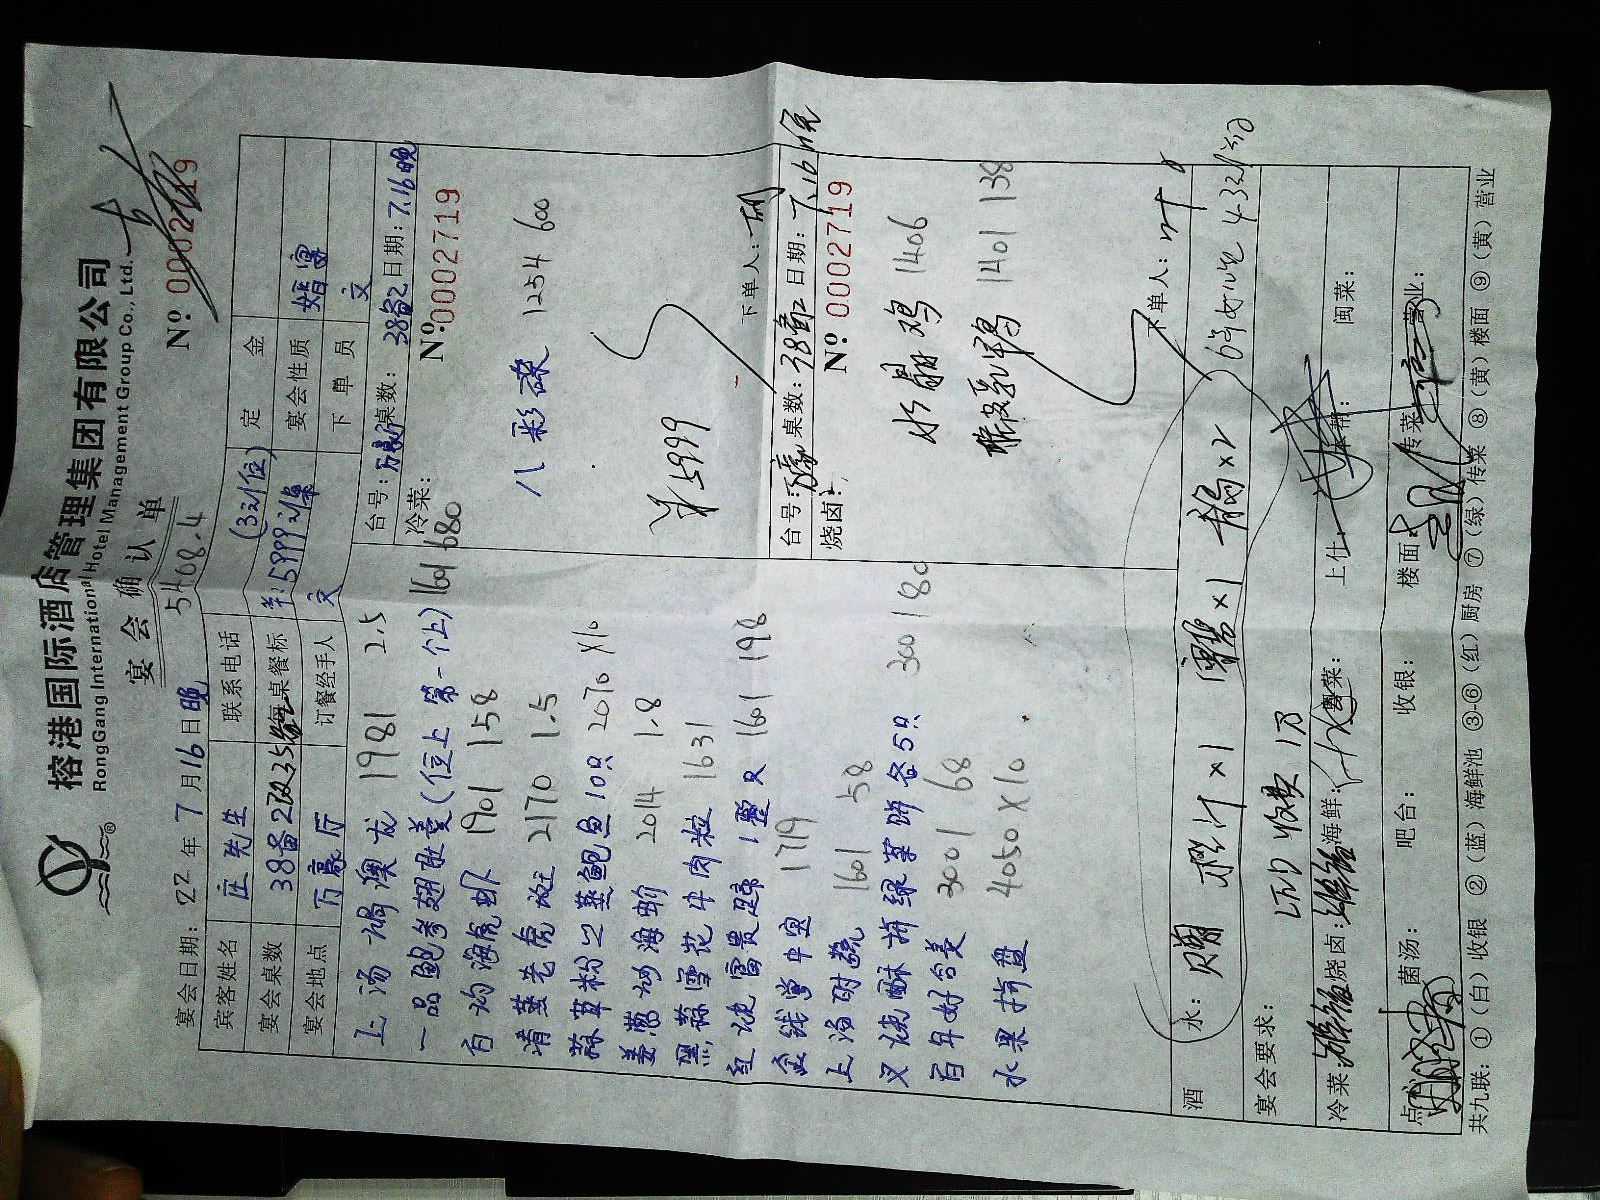 榕港国际酒店管理集团有限公司
RongGang International Hotel Management Group Co., Ltd.
宴会确认单
Nº 0002719
宴会日期: 22 年 7 月 16 日 晚 5408.4
宾客姓名 庄先生 联系电话 (3对位) 定金
宴会桌数 38备2 每桌餐标 5999 宴会性质 婚宴
宴会地点 万豪厅 订餐经手人 文 下单员 文
上汤焗澳龙 1981 2.5
一品鲍参翅肚羹(位上 第一个上) 1601 680
白灼海虎虾 1901 158
清蒸老虎斑 2170 1.5
蒜茸粉丝蒸鲍鱼10只 2070 X10
姜葱炒海蚧 2014 1.8
黑蒜雪花牛肉粒 1631
红烧富贵蹄1整只 1601 198
金钱掌中宝 1719
上汤时蔬 1601 58
叉烧酥拼绿茶饼各5只 300 180
百年好合羹 3001 68
水果拼盘 4050 X10
台号: 万豪厅 桌数: 38备2 日期: 7.16晚
冷菜:
Nº 0002719
八彩碟 1254 600
5999
下单人:
台号: 桌数: 38备2 日期: 7.16晚
烧卤:
Nº 0002719
水晶鸡 1406
脆皮乳鸽 1401 138
下单人: 叶
酒水: 橙汁 x1 x1 x2
宴会要求: LED
冷菜: 烧卤: 海鲜: 粤菜: 上什: 本帮: 闽菜:
点 菌汤: 吧台: 收银: 楼面: 传菜: 营业:
共九联: ①(白)收银 ②(蓝)海鲜池 ③-⑥(红)厨房 ⑦(绿)传菜 ⑧(黄)楼面 ⑨(黄)营业